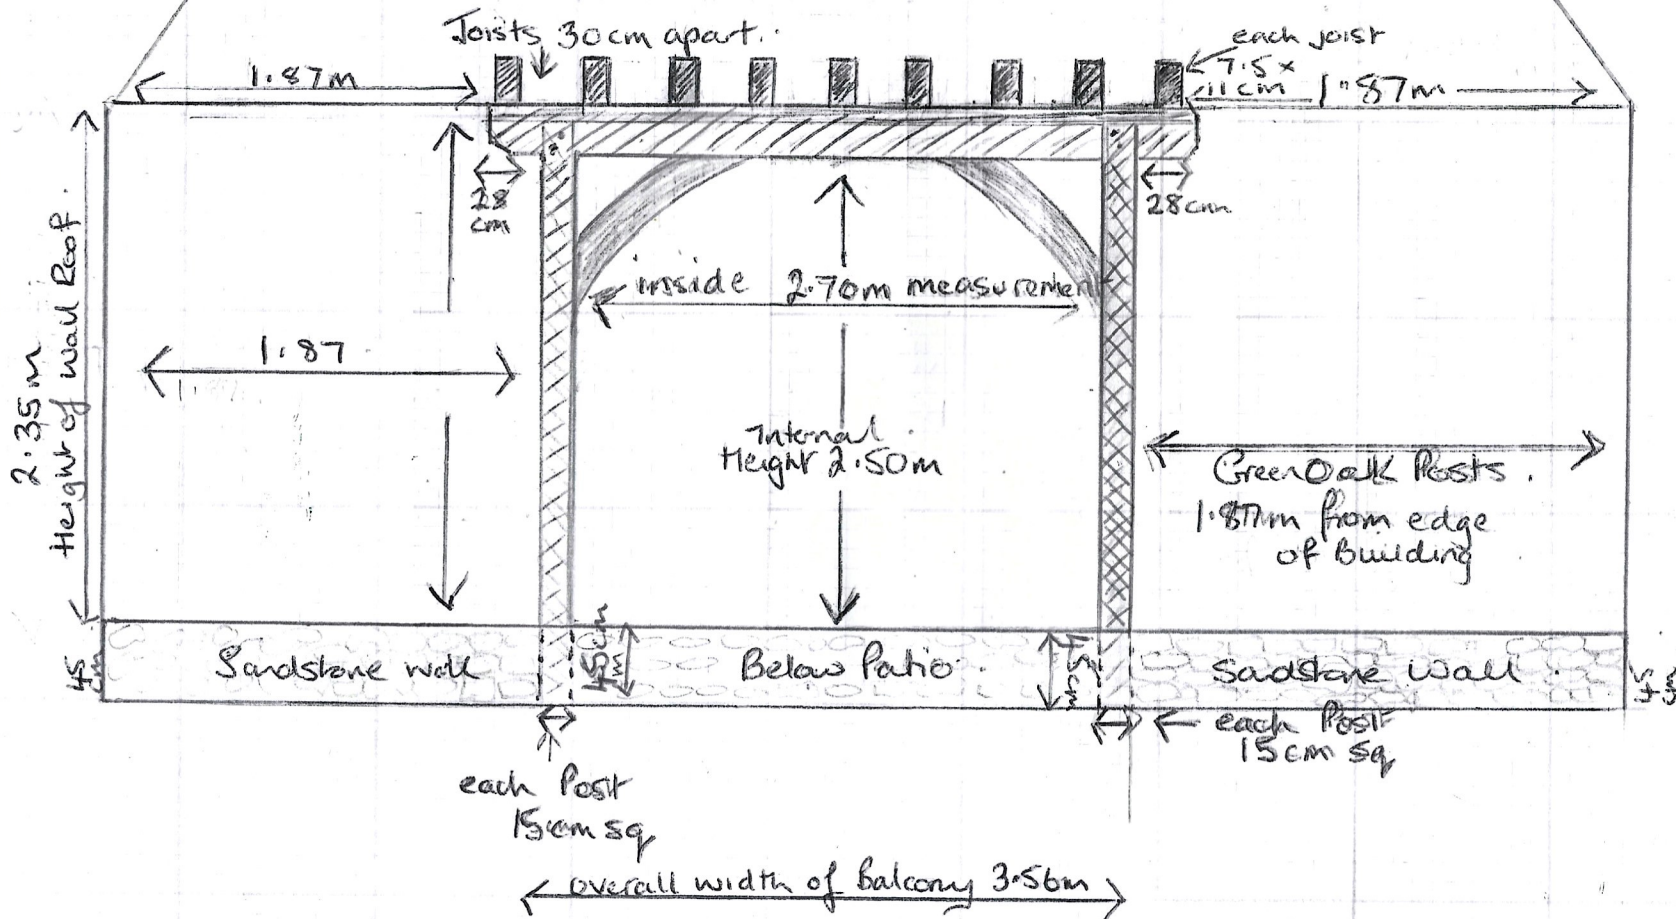 Joists 30cm apart..
each joist
7.5 x
11cm
1.87m
1.87m
28
cm
28cm
2.35m
Height of Wall Roof.
inside 2.70m measurement
1.87
Internal
Height 2.50m
Green Oak Posts.
1.87m from edge
of Building
45
cm
Sandstone wall
45cm
Below Patio.
45cm
Sandstone Wall.
45
cm
each Post
15cm sq
each Post
15cm sq
overall width of Balcony 3.56m